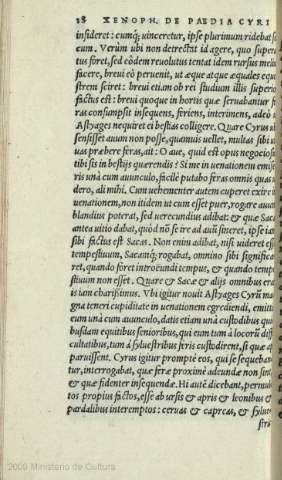 28 XENOPH. DE PAEDIA CYRI
insideret: cumq́; uinceretur, ipse plurimum ridebat se
cum. Verùm ubi non detrectat id agere, quo superatus
tus foret, sed eòdem reuolutus tentat idem rursus melius
facere, breui eò peruenit, ut æque atque æquales eque
strem sciret: breui etiam ob rei studium illis superior
factus est: breui quoque in hortis quæ seruabantur fe
ras consumpsit insequens, feriens, interimens, adeò ut
Astyages nequiret ei bestias colligere. Quare Cyrus ubi
sensisset auum non posse, quamuis uellet, multas sibi ui
uas præbere feras, ait: O aue, quid est opus negocio
tibi sis in bestijs quærendis? Si me in uenationem emise
ris unà cum auunculo, facilè putabo feras omnis quas ui
dero, ali mihi. Cum uehementer autem cuperet exire in
uenationem, non itidem ut cum esset puer, rogare auum
blandius poterat, sed uerecundius adibat: & quæ Sacæ
antea uitio dabat, quòd nō se ire ad auū sineret, ipse iam
sibi factus est Sacas. Non enim adibat, nisi uideret esse
tempestiuum, Sacamq́; rogabat, omnino sibi significa
ret, quando foret introëundi tempus, & quando tempe
stiuum non esset. Quare & Sacæ & alijs omnibus erat
is tam charissimus. Vbi igitur nouit Astyages Cyrū ma
gna teneri cupiditate in uenationem egrediendi, emittit
eum unà cum auunculo, datis etiam unà custodibus qui
busdam equitibus senioribus, qui eum tum à locorū diffi
cultatibus, tum à syluestribus feris custodirent, si quæ ap
paruissent. Cyrus igitur promptè eos, qui se sequeban
tur, interrogabat, quæ feræ proximè adeundæ non sint,
& quæ fidenter insequendæ. Hi autē dicebant, permul
tos propius factos, esse ab ursis & apris & leonibus &
pardalibus interemptos: ceruas & capreas, & sylue
stri
2009 Ministerio de Cultura